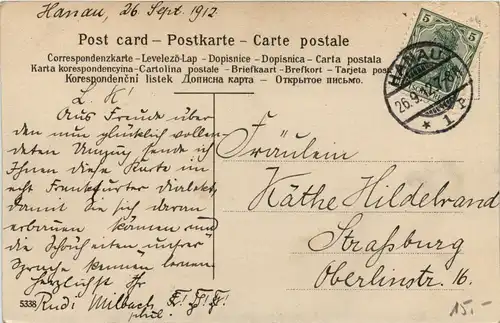 Hanau, 26. Sept. 1912.
Post card – Postkarte – Carte postale
Correspondenzkarte – Levelező-Lap – Dopisnice – Dopisnica – Carta postala
Karta korespondencyjna – Cartolina postale – Briefkaart – Brefkort – Tarjeta post
Korespondenční listek Дописна карта – Открытое письмо.
5
5
HANAU
26.9.12. 7-8 N
* 1 a
L. K!
Aus Freude über
den nun glücklich vollen-
deten Umzug sende ich
Ihnen diese Karte im
echt Frankfurter Dialekt,
damit Sie sich daran
erbauen können und
die Schönheiten unsrer
Sprache kennen lernen.
Herzlichst Ihr
Rudi Milbach
phil.
Fräulein
Käthe Hildebrand
Straßburg
Oberlinstr. 16.
5338
15.-